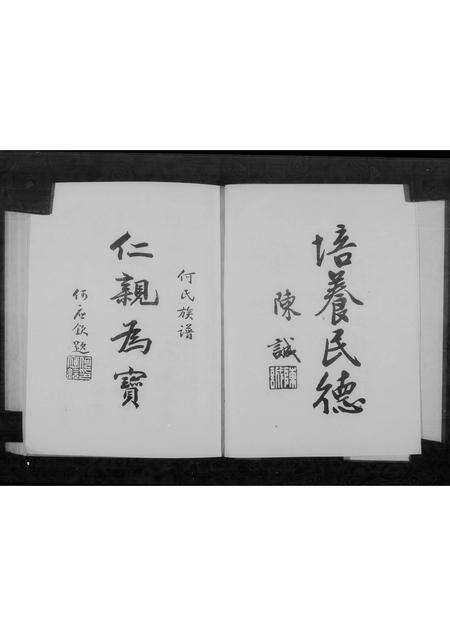 培養民德
陳誠
何氏族谱
仁親為寶
何应欽題